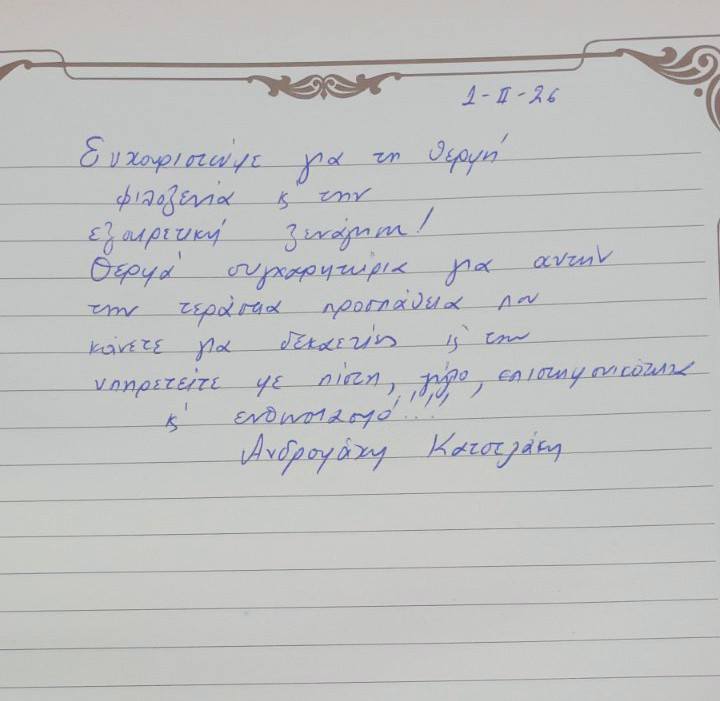 1-II-26
Ευχαριστούμε για τη θερμή
φιλοξενία κ' την
εξαιρετική ξενάγηση!
Θερμά συγχαρητήρια για αυτήν
την τεράστια προσπάθεια που
κάνετε για δεκαετίες κ' την
υπηρετείτε με πίστη, ζήλο, επιστημονικότητα
κ' ενθουσιασμό!...!!!
Ανδρομάχη